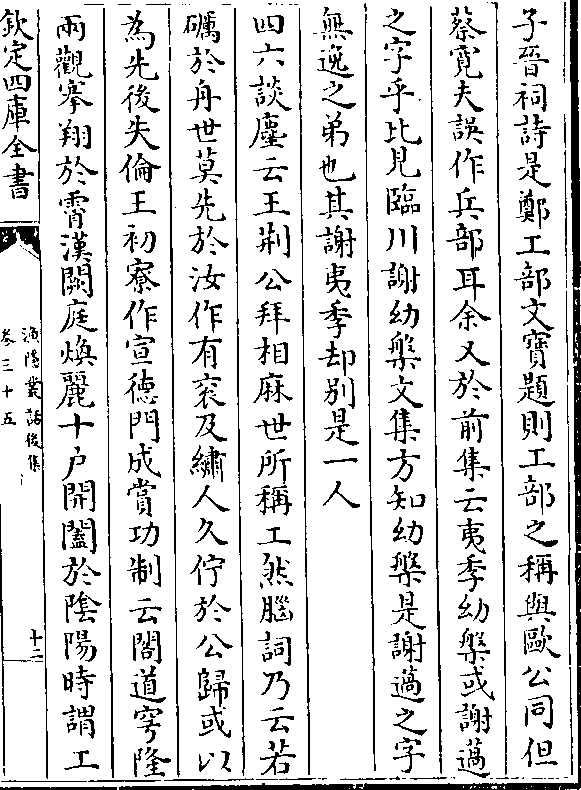 子晉祠詩是鄭工部文寶題則工部之稱與歐公同但
蔡寛夫誤作兵部耳余又於前集云夷季幼槃或謝薖
之字乎比見臨川謝幼槃文集方知幼槃是謝薖之字
無逸之弟也其謝夷季却别是一人
四六談麈云王荆公拜相麻世所稱工然腦詞乃云若
礪於舟世莫先於汝作有衮及繡人久佇於公歸或以
為先後失倫王初寮作宣徳門成賞功制云閣道穹隆
兩觀搴翔於霄漢闕庭煥麗十户開闔於陰陽時謂工
欽定四庫全書
漁隱叢話後集
卷三十五
十二